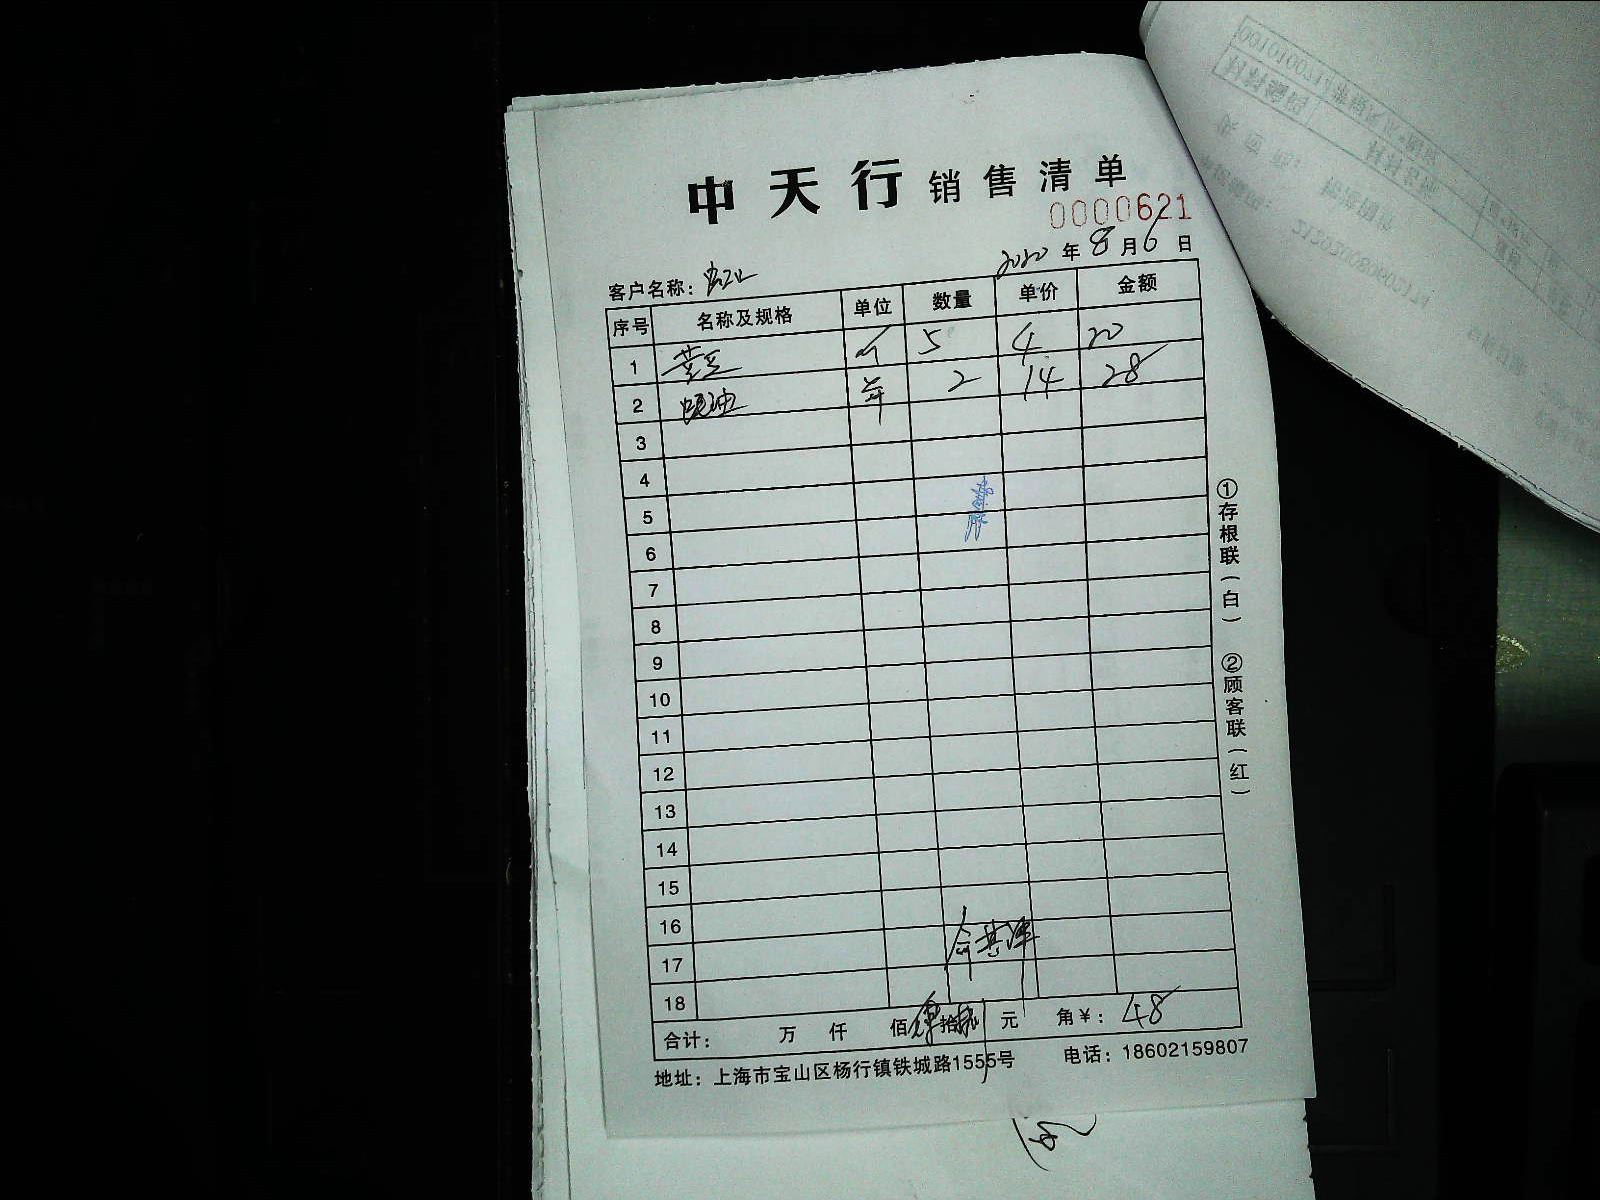 中天行 销售清单
0000621
2020 年 8 月 6 日
客户名称: 宝山
序号 名称及规格 单位 数量 单价 金额
1 5 4 20
2 蚝油 2 14 28
3
4
5
6
7
8
9
10
11
12
13
14
15
16
17
18
合计: 万 仟 佰 肆拾捌 元 角¥: 48
地址: 上海市宝山区杨行镇铁城路1555号 电话: 18602159807
①存根联(白) ②顾客联(红)